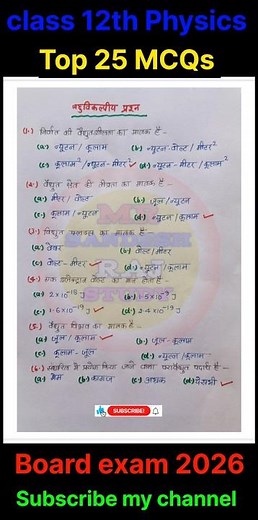 class 12th Physics
Top 25 MCQs
बहुविकल्पीय प्रश्न
(1.) निर्वात की वैद्युतशीलता का मात्रक है -
(a) न्यूटन / कुलाम (b) न्यूटन-वोल्ट / मीटर²
(c) कुलाम² / न्यूटन-मीटर² ✓ (d) न्यूटन-मीटर² / कुलाम²
(2.) विद्युत क्षेत्र की तीव्रता का मात्रक है -
(a) मीटर / वोल्ट (b) जूल / न्यूटन
(c) कुलाम / न्यूटन (d) न्यूटन / कुलाम ✓
(3.) विद्युत फ्लक्स का मात्रक है -
(a) वेबर (b) वोल्ट/मीटर
(c) वोल्ट - मीटर ✓ (d) न्यूटन / कुलाम
(4.) एक इलेक्ट्रान वोल्ट का मान होता है -
(a) J (b) J
(c) 1.6×10⁻¹⁹ J ✓ (d) J
(5.) वैद्युत विभव का मात्रक है -
(a) जूल / कुलाम ✓ (b) जूल - कुलाम
(c) कुलाम - जूल (d) न्यूटन / कुलाम
(6.) में प्रयोग किया जाने वाला पदार्थ है -
(a) मोम (b) कागज (c) अभ्रक (d) ✓
SUBSCRIBE!
Board exam 2026
Subscribe my channel